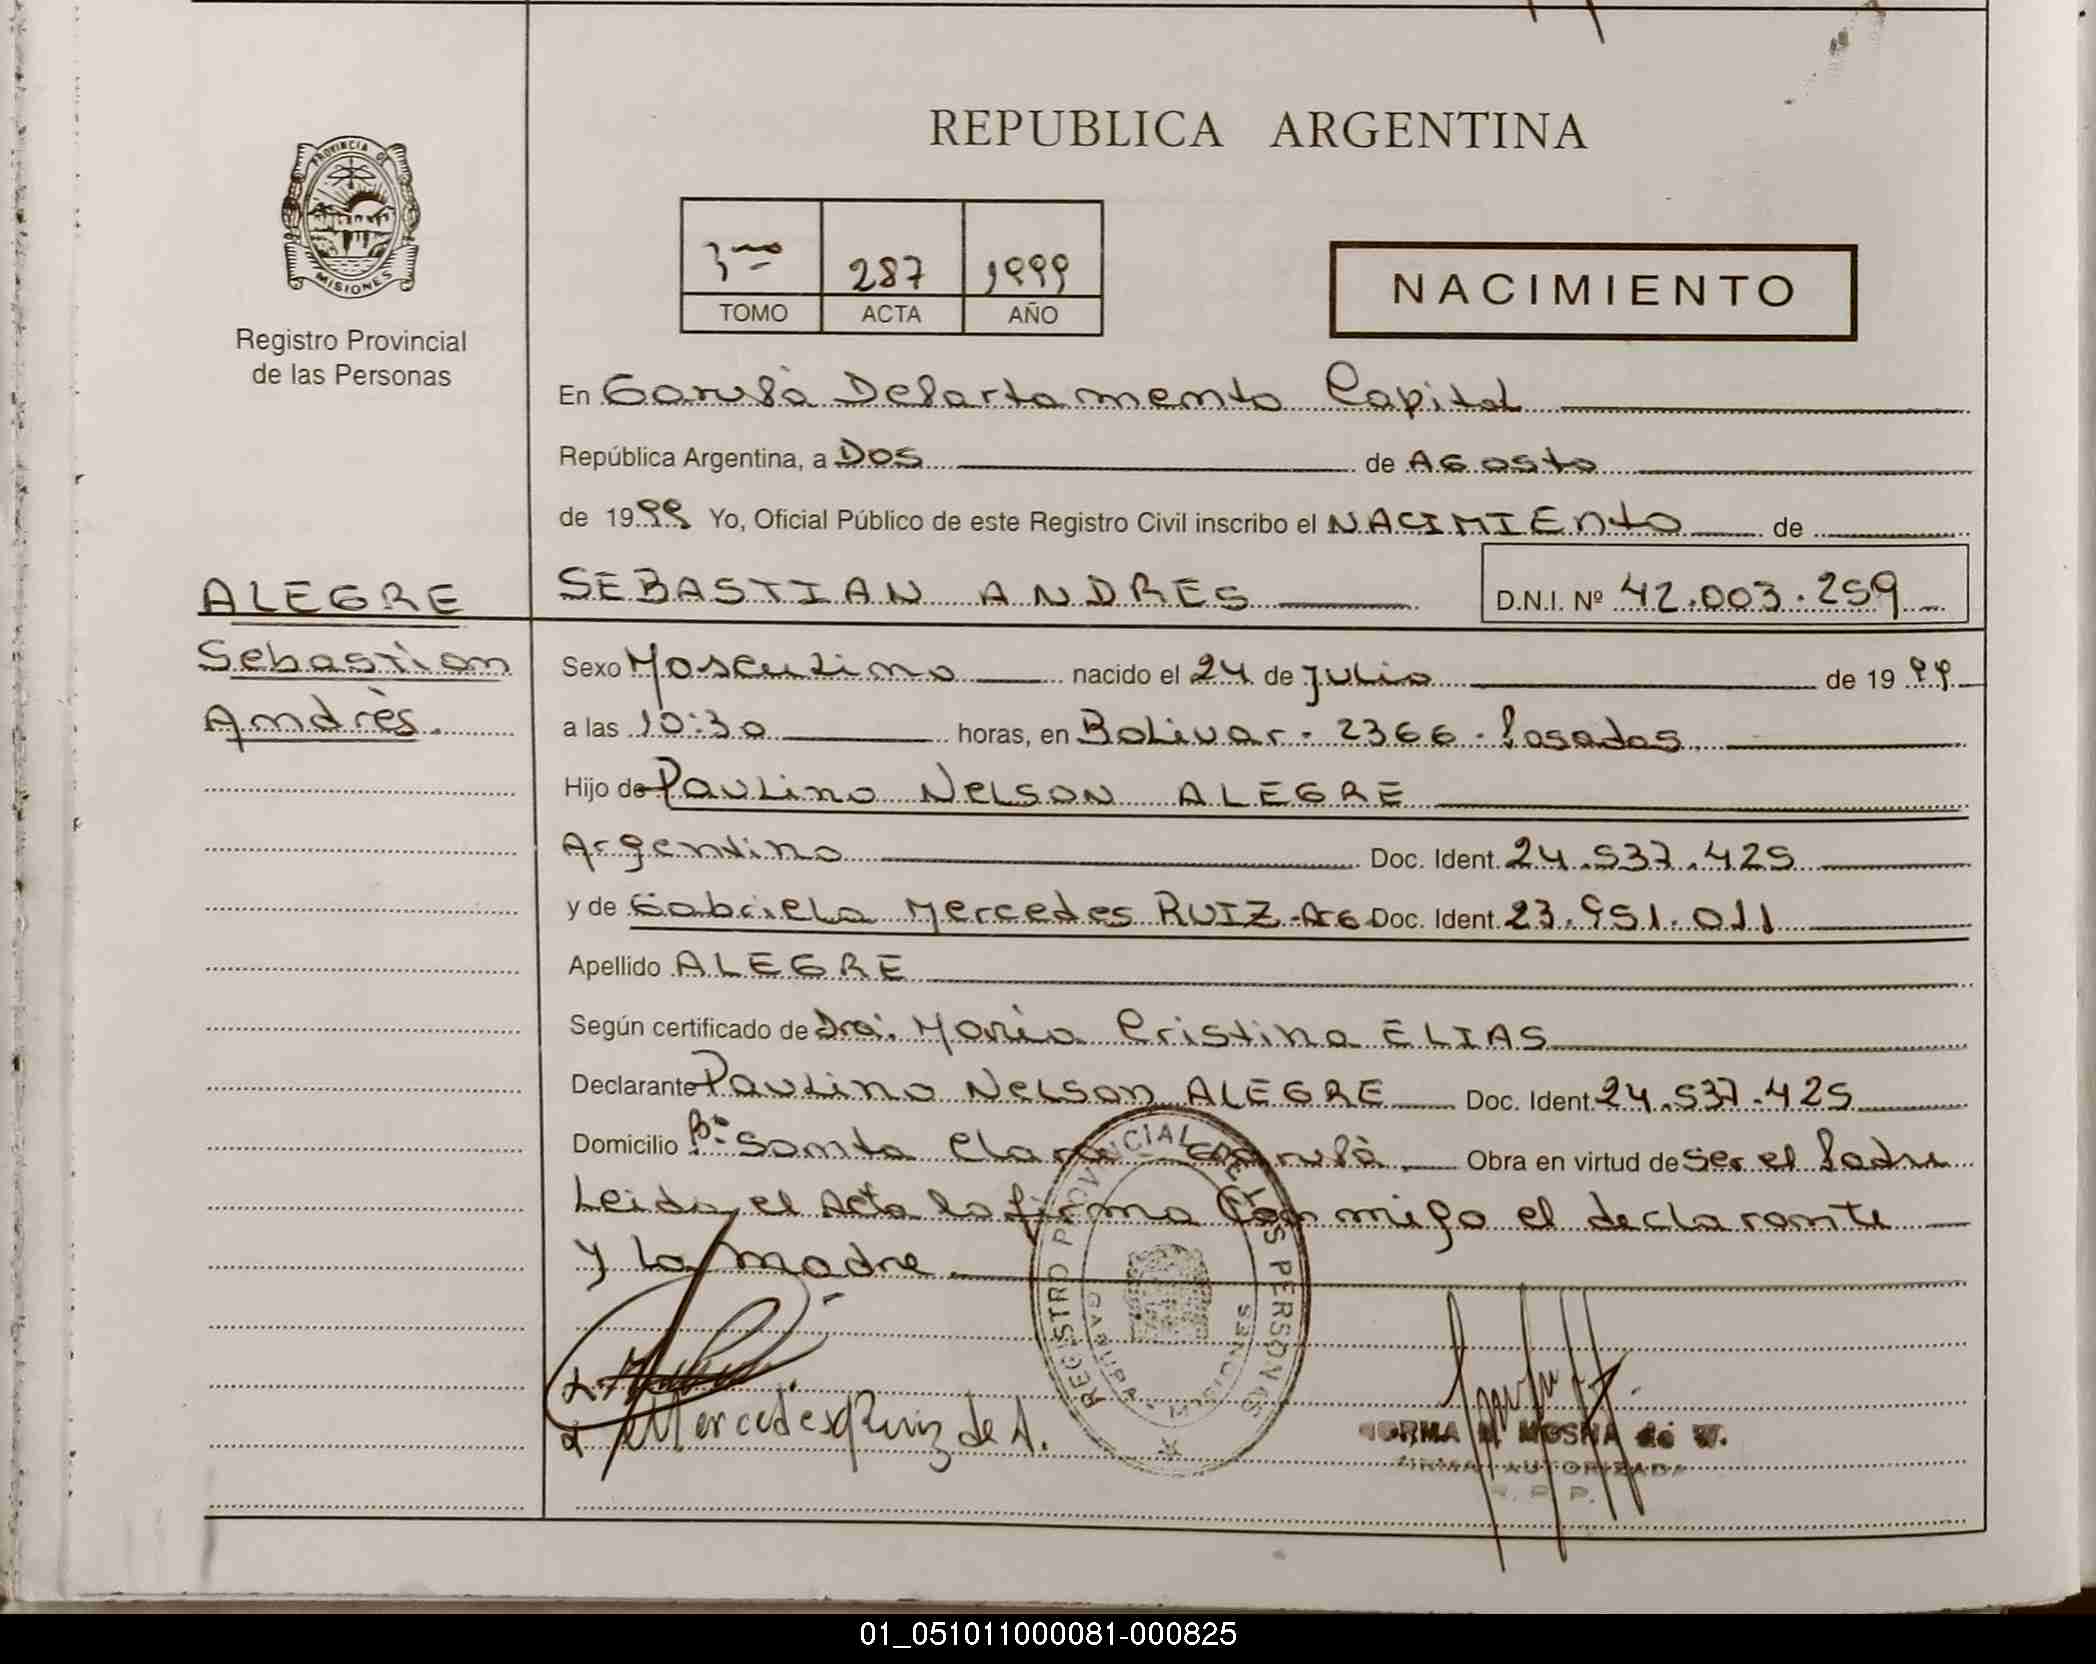 REPUBLICA ARGENTINA
PROVINCIA DE
MISIONES
Registro Provincial
de las Personas
3ro 287 1999
TOMO ACTA AÑO
NACIMIENTO
En Garupà Departamento Capital
República Argentina, a Dos de AGosto
de 1999 Yo, Oficial Público de este Registro Civil inscribo el NACIMIEnto de
ALEGRE
Sebastian
Andrès.
SEBASTIAN ANDRES D.N.I. Nº 42.003.259
Sexo Masculino nacido el 24 de Julio de 1999
a las 10:30 horas, en Bolivar - 2366 - Posadas
Hijo de Paulino Nelson ALEGRE
Argentino Doc. Ident. 24.537.425
y de Gabriela Mercedes RUIZ - ArG Doc. Ident. 23.951.011
Apellido ALEGRE
Según certificado de Dra. Maria Cristina ELIAS
Declarante Paulino Nelson ALEGRE Doc. Ident. 24.537.425
Domicilio Bº Santa Clara Garupà Obra en virtud de ser el Padre
Leida el Acta la firma Conmigo el declarante
y la madre.
REGISTRO PROVINCIAL DE LAS PERSONAS
GARUPA - MISIONES
Mercedes Ruiz de A.
NORMA MOSNA de W.
FIRMA AUTORIZADA
R. P. P.
01_051011000081-000825